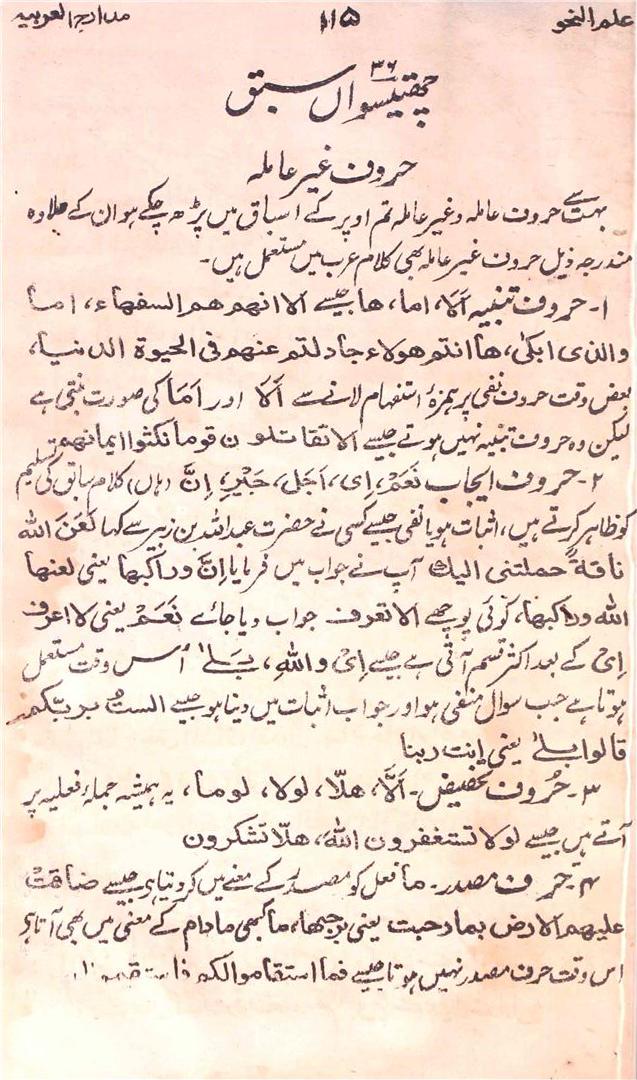 علم النحو ۱۱۵ مدارج العربیه
۳۶
چھتیسواں سبق
حروف غیر عاملہ
بہت سے حروف عاملہ و غیر عاملہ تم اوپر کے اسباق میں پڑھ چکے ہو ان کے علاوہ
مندرجہ ذیل حروف غیر عاملہ بھی کلام عرب میں مستعمل ہیں۔
۱- حروف تنبیہ اَلَا، اما، ھا جیسے الا انھم ھم السفھاء، اما
والذی ابکیٰ، ھا انتم ھولاء جادلتم عنھم فی الحیوۃ الدنیا،
بعض وقت حروف نفی پر ہمزۂ استفہام لانے سے اَلَا اور اَمَا کی صورت بنتی ہے
لیکن وہ حروف تنبیہ نہیں ہوتے جیسے الا تقاتلون قوما نکثوا ایمانھم
۲- حروف ایجاب نَعَمْ، اِی، اَجَل، جَیْرِ، اِنَّ (ہاں) کلام سابق کی تسلیم
کو ظاہر کرتے ہیں، اثبات ہو یا نفی جیسے کسی نے حضرت عبداللہ بن زبیر سے کہا لَعَنَ اللہ
ناقۃً حملتنی الیك آپ نے جواب میں فرمایا اِنَّ وراکبھا یعنی لعنھا
اللہ وراکبھا، کوئی پوچھے الا تعرف جواب دیا جائے نَعَمْ یعنی لا اعرف
اِیْ کے بعد اکثر قسم آتی ہے جیسے اِیْ واللہِ، بَلیٰ اُس وقت مستعمل
ہوتا ہے جب سوال منفی ہو اور جواب اثبات میں دینا ہو جیسے الستُ بربّکم
قالوا بلیٰ یعنی انت ربنا
۳- حُروف تحضیض- اَلَّا، ھلّا، لولا، لوما، یہ ہمیشہ جملۂ فعلیہ پر
آتے ہیں جیسے لولا تستغفرون اللہَ، ھلّا تشکرون
۴- حرف مصدر- ما فعل کو مصدر کے معنے میں کر دیتا ہی جیسے ضاقت
علیھم الارض بما رحبت یعنی برحبھا، ما کبھی مادام کے معنی میں بھی آتا ہی
اس وقت حرف مصدر نہیں ہوتا جیسے فما استقاموا لکم فاستقیموا